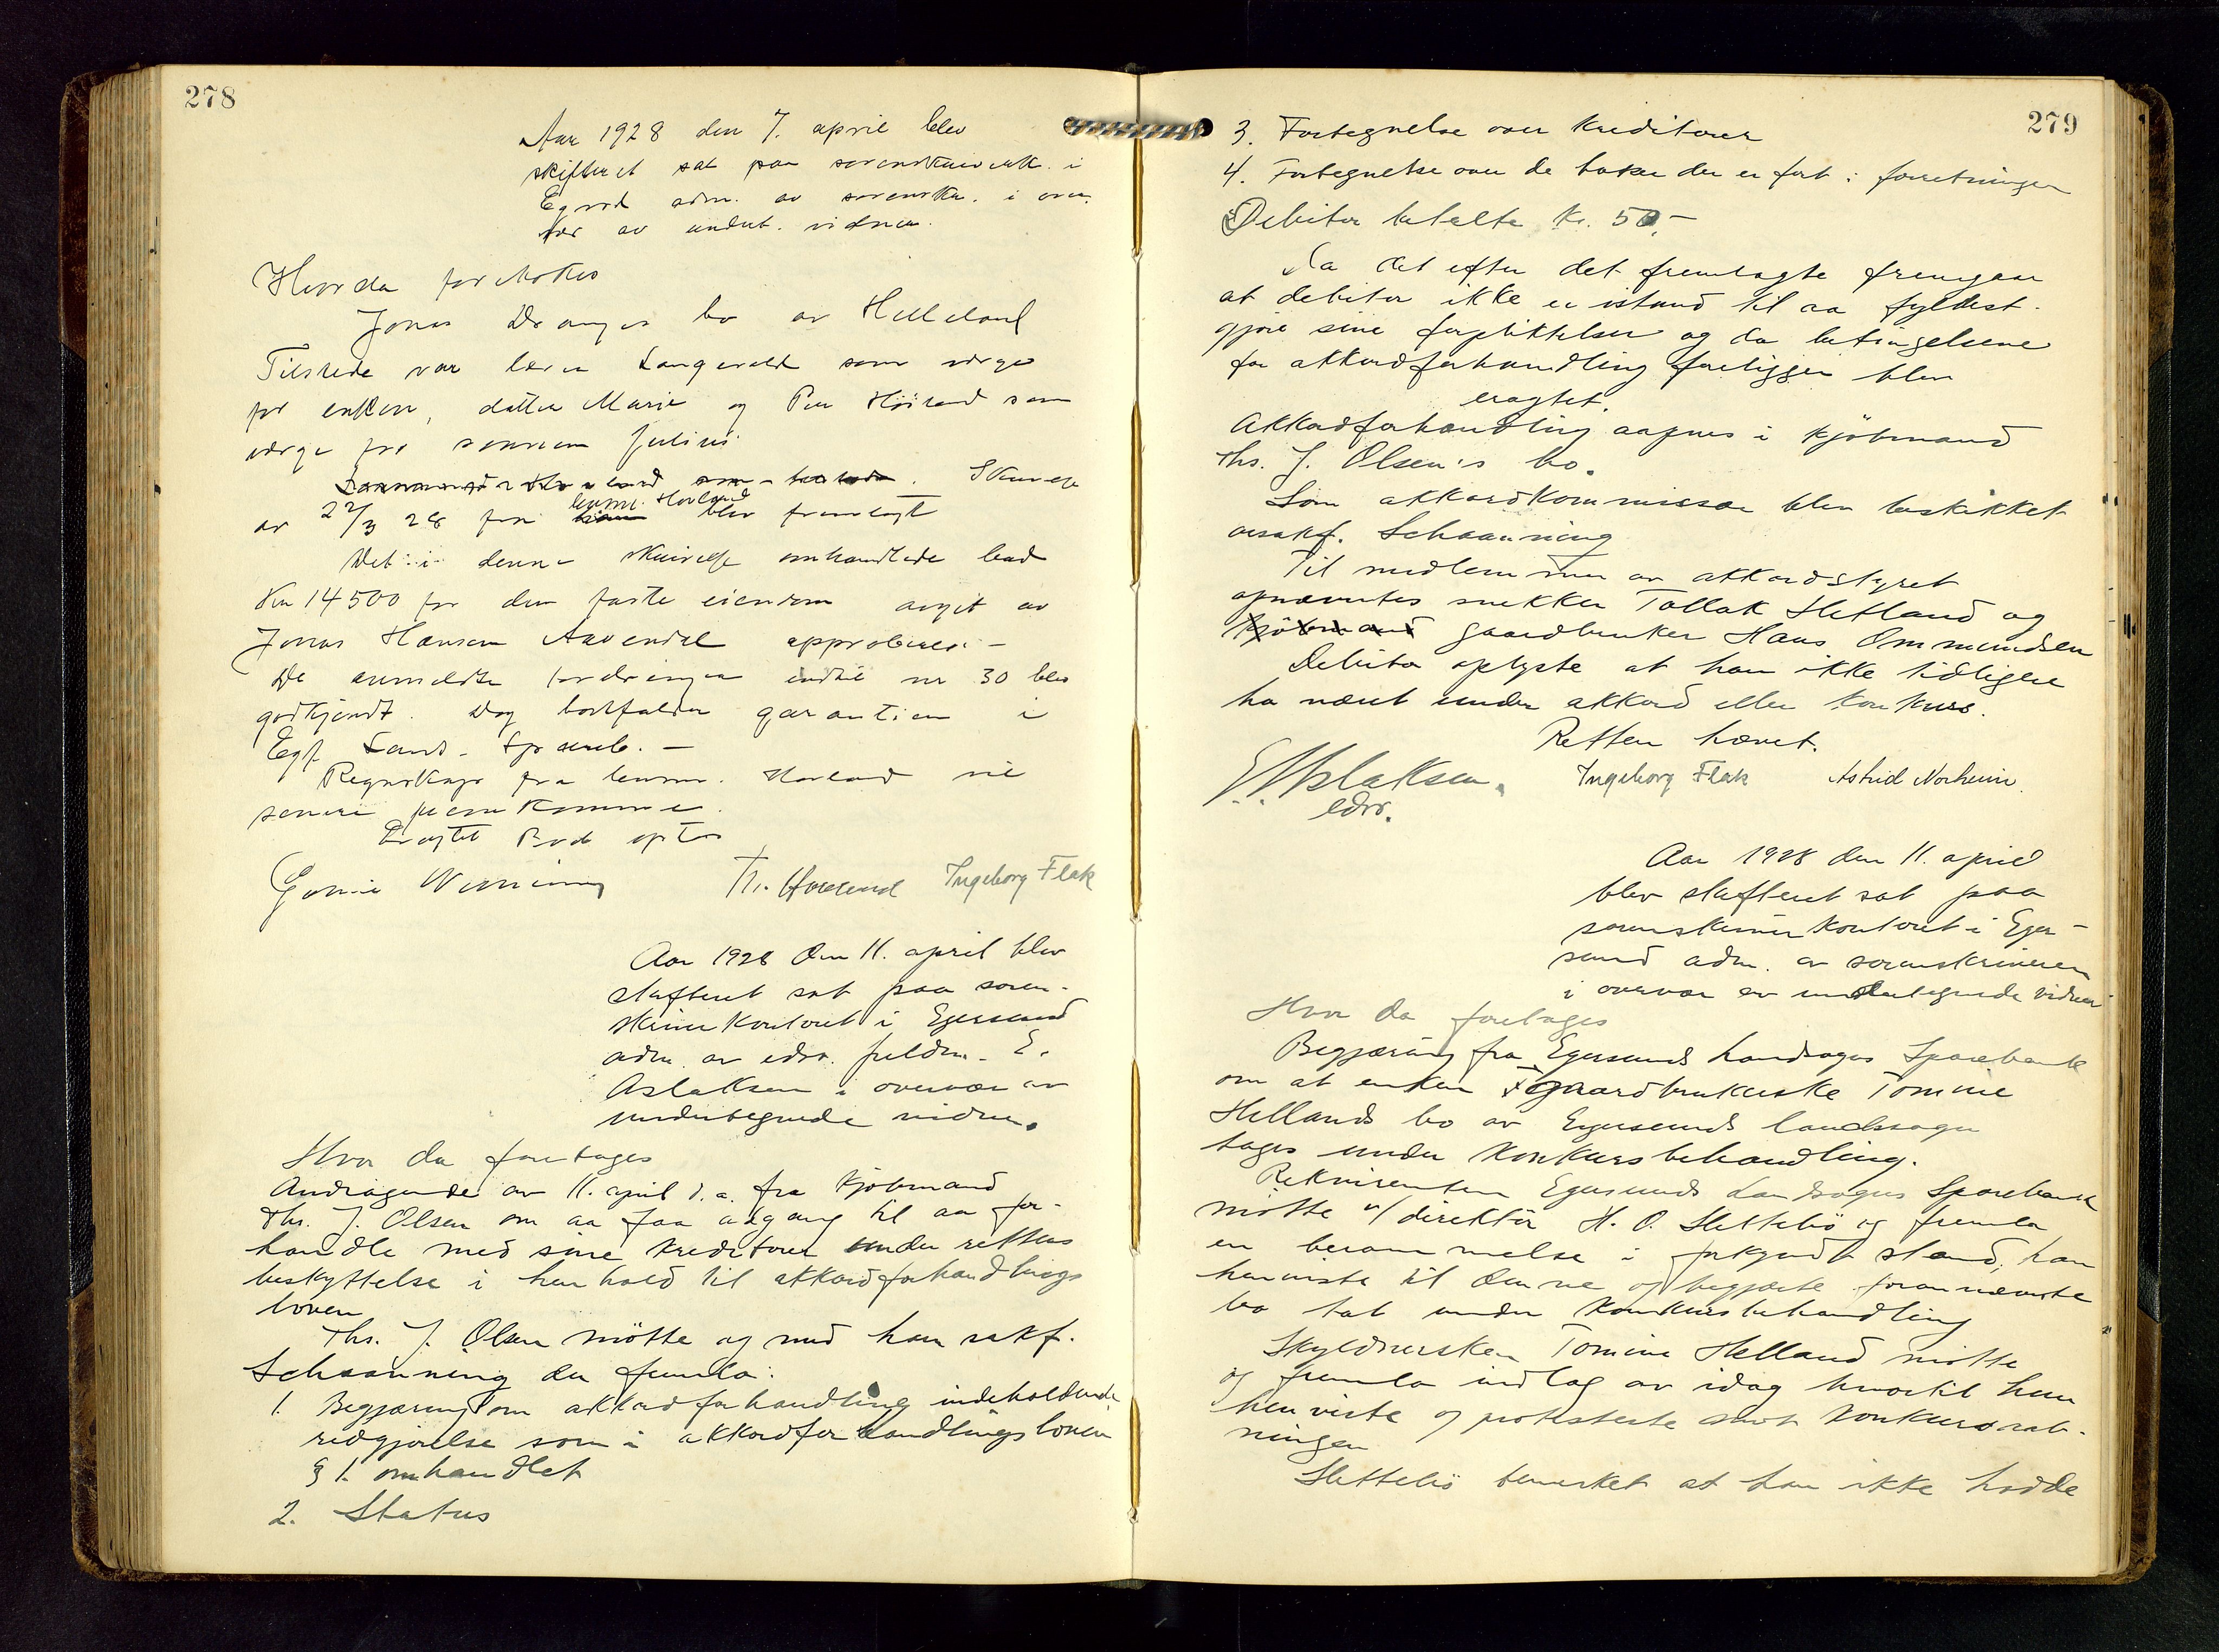 278
Aar 1928 den 7. april blev
skifteret sat paa sorenskriverk. i
Egsund adm. av sorenskr. i over-
vær av undert. vidner.
Hvorda foretokes
Jonas Dranges bo av Helleland
Tilstede var lærer Langevald som verge
for enken, datter Marie og Per Höiland som
verge for sönnen Julius.
Skrivelse
av 22/3 28 fra lensm. Hovland blev fremlagt
Det i denne skrivelse omhandlede bud
Kr 14500 for den faste eiendom avgit av
Jonas Hansen Aavendal approberes. -
De anmeldte fordringer indtil nr 30 blev
godkjendt. Dog bortfalder garantien i
Egs. Lands. Spareb. -
Regnskap fra lensm. Hovland vil
senere fremkomme.
Eragtet Bod optas
Ingeborg Flak
Aar 1928 den 11. april blev
skifteret sat paa soren-
skriverkontoret i Egersund
adm. av edsv. fuldm. E.
Aslaksen i overvær av
undertegnede vidner.
Hvor da foretages
Andragende av 11. april d. a. fra kjöbmand
Ths. J. Olsen om aa faa adgang til aa for-
handle med sine kreditorer under rettens
beskyttelse i henhold til akkordforhandlings
loven
Ths. J. Olsen mötte og med ham sakf.
Schaanning der fremla:
1. Begjæring om akkordforhandling indeholdende
redgjörelse som i akkordforhandlingsloven
§ 1. omhandlet
2. Status
279
3. Fortegnelse over kreditorer
4. Fortegnelse over de böker der er fört i forretningen
Debitor betalte kr. 50,-
Da det efter det fremlagte fremgaar
at debitor ikke er istand til aa fyldest-
gjöre sine forpliktelser og da betingelsene
for akkordforhandling foreligger blev
eragtet.
Akkordforhandling aapnes i kjöbmand
Ths. J. Olsen's bo.
Som akkordkommissær blev beskikket
oversakf. Schaanning
Til medlemmer av akkordstyret
opnævntes snekker Tollak Hetland og
kjöbmand gaardbruker Hans Ommundsen
Debitor oplyste at han ikke tidligere
ha været under akkord eller konkurs.
Retten hævet.
E. Aslaksen. Ingeborg Flak Astrid Norheim.
edsv.
Aar 1928 den 11. april
blev skifteret sat paa
sorenskriverkontoret i Eger-
sund adm. av sorenskriveren
i overvær av undertegnede vidner
Hvor da foretages
Begjæring fra Egersunds landsogns Sparebank
om at enken gaardbrukerske Tomine
Hellands bo av Egersunds landsogn
tages under konkursbehandling.
Rekvirenten Egersunds Landsogns Sparebank
mötte v/ direktör H. O. Slettebö og fremla
en berammelse i forkyndt stand, han
henviste til denne og begjærte forannævnte
bo tat under konkursbehandling
Skyldnersken Tomine Helland mötte
og fremla indlæg av idag hvortil hun
henviste og protesterte mot konkursaab-
ningen
Slettebö bemerket at han ikke hadde